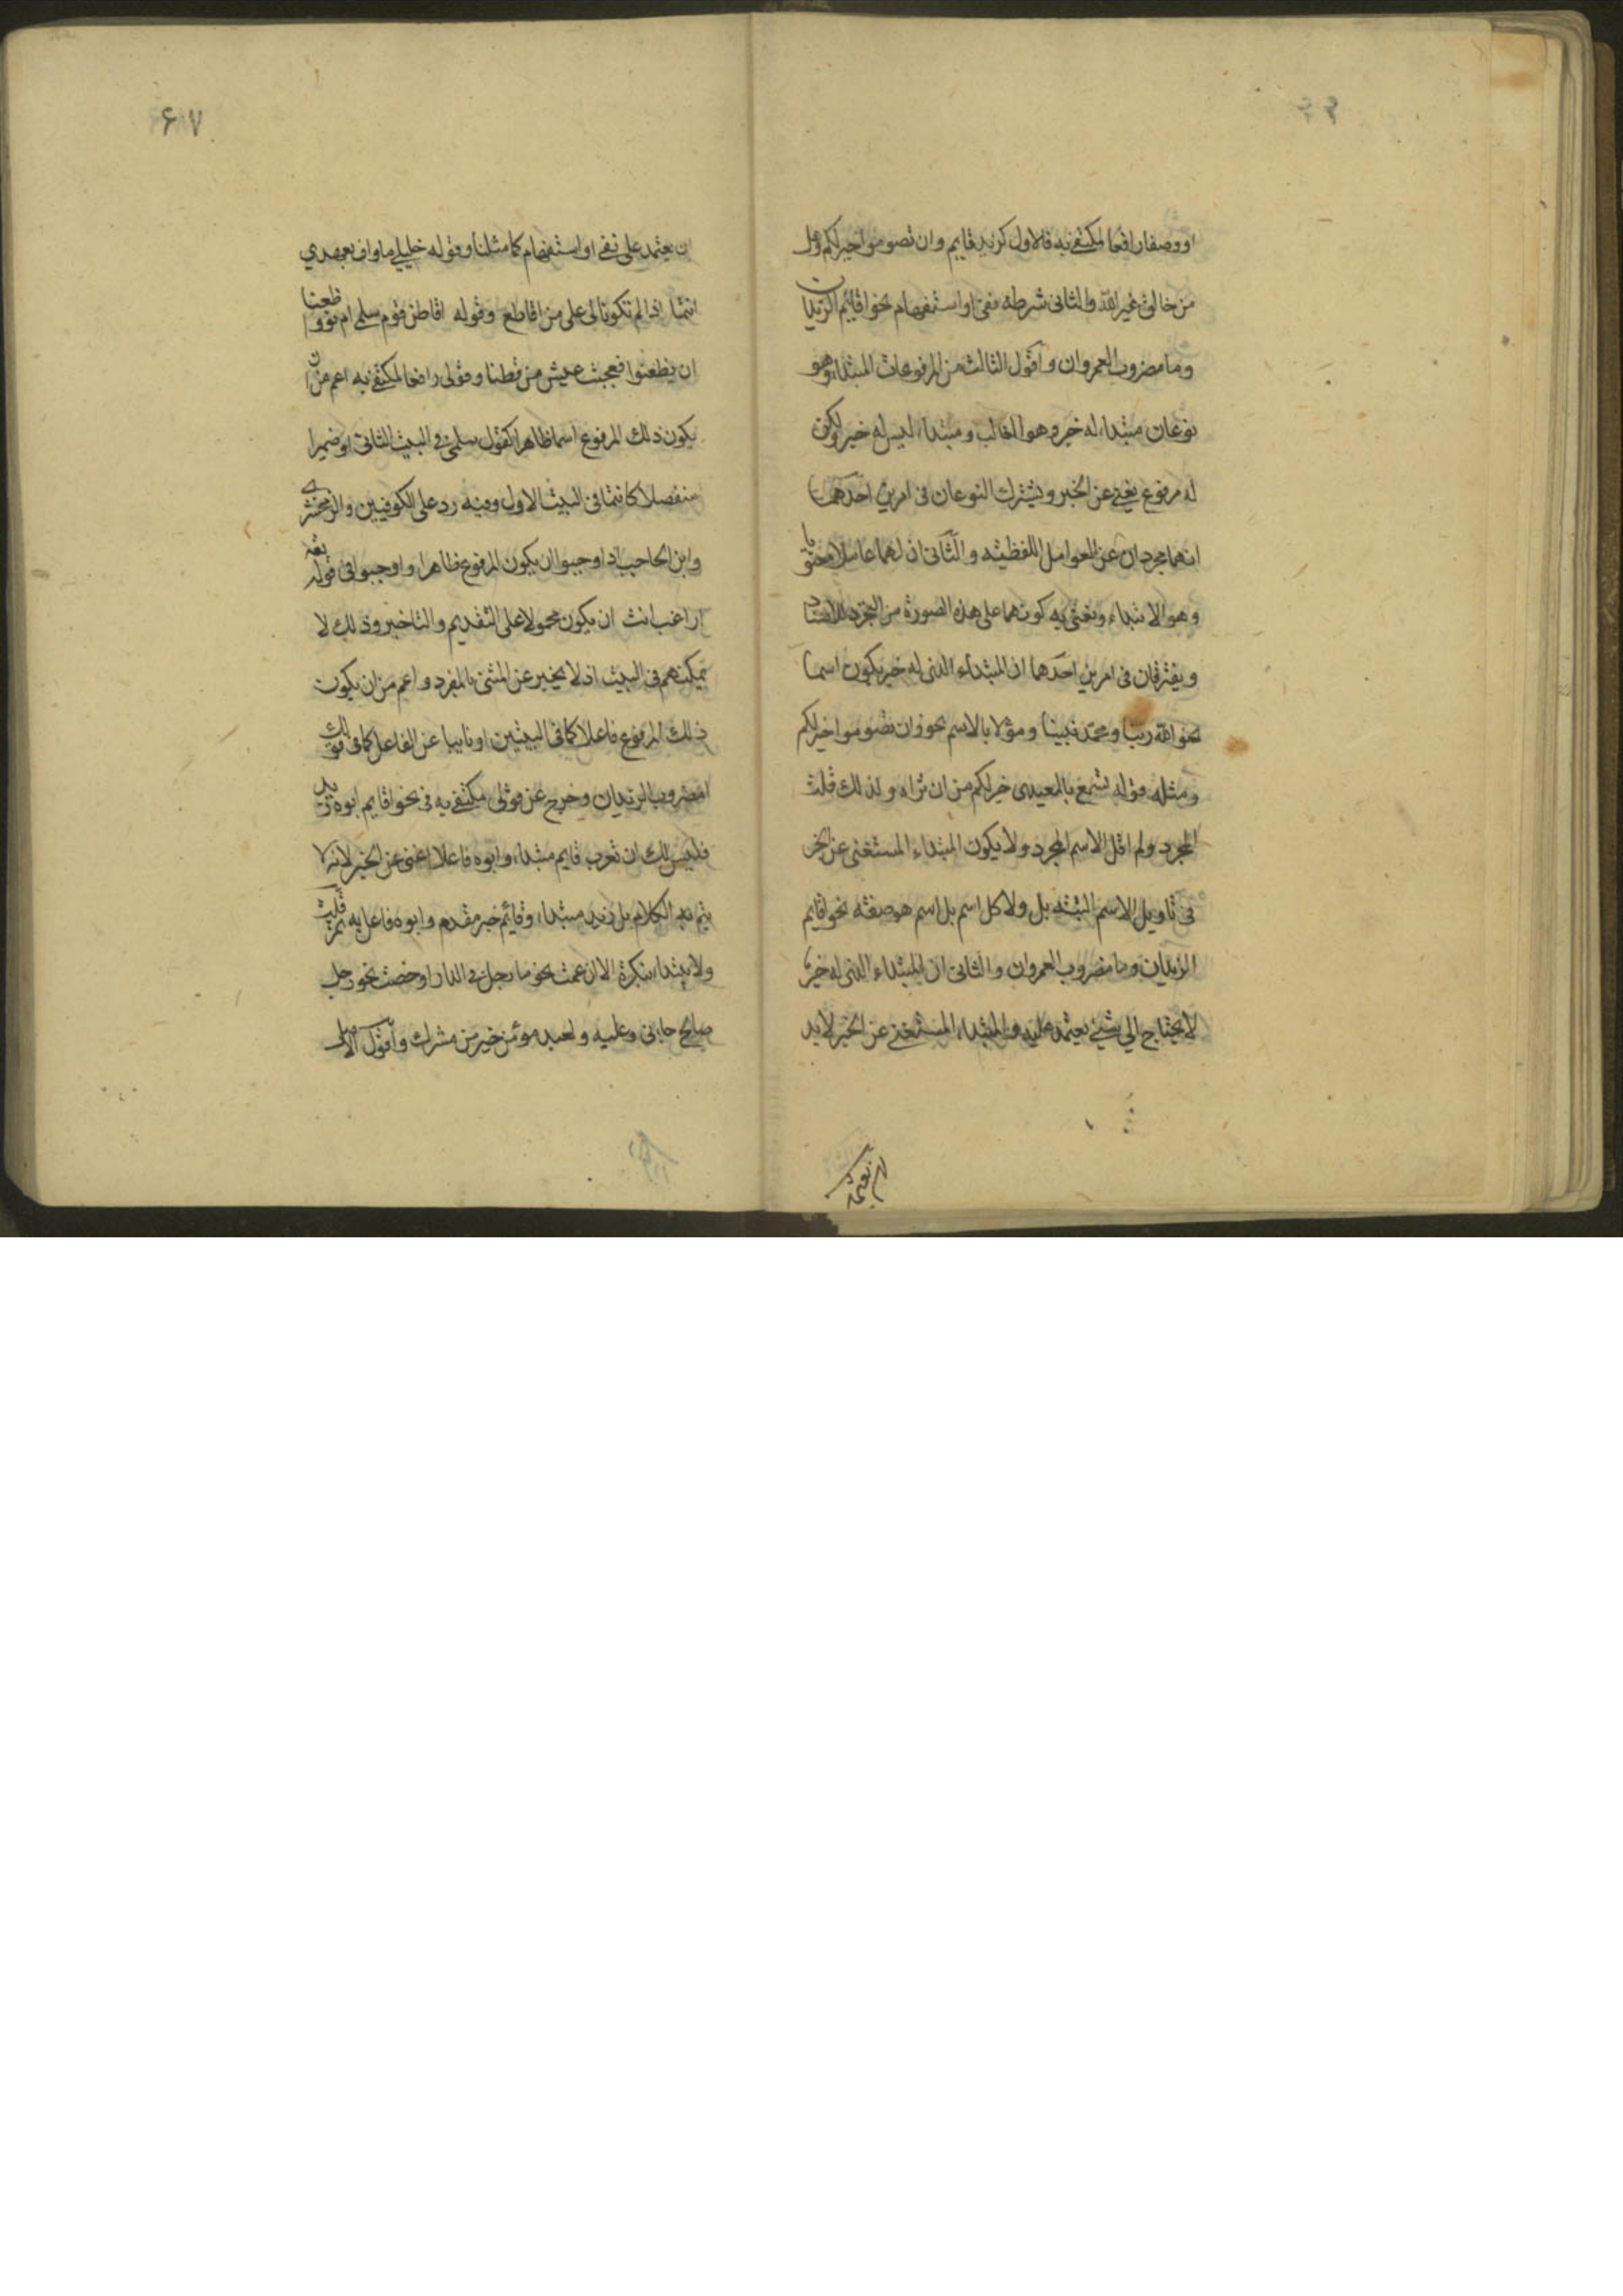 او وصفا رافعا لمكتفى به فالاول كزيد قايم وان تصوموا خير لكم وهل
من خالق غير الله والثانى شرطه نفى او استفهام نحو اقايم الزيدان
وما مضروب العمروان واقول الثالث من المرفوعات المبتداء وهو
نوعان مبتداء له خبر وهو الغالب ومبتداء ليس له خبر ولكن
له مرفوع يغنى عن الخبر ويشترك النوعان فى امرين احدهما
انهما مجردان عن العوامل اللفظيه والثانى ان لهما عاملا معنويا
وهو الابتداء ونعنى به كونهما على هذه الصورة من التجرد للاسناد
ويفترقان فى امرين احدهما ان المبتداء الذى له خبر يكون اسما
نحو الله ربنا ومحمد نبينا ومؤلا بالاسم نحو وان تصوموا خير لكم
ومثله قوله تسمع بالمعيدى خير لكم من ان تراه ولذلك قلت
المجرد ولم اقل الاسم المجرد ولا يكون المبتداء المستغنى عن الخبر
فى تاويل الاسم البته بل ولا كل اسم بل اسم هو صفته نحو اقايم
الزيدان وما مضروب العمروان والثانى ان المبتداء الذى له خبر
لا يحتاج الي شيئ يعتمد عليه والمبتداء المستغنى عن الخبر لابد
ان يعتمد
۶۷
ان يعتمد على نفى او استفهام كما مثلنا وقوله خليلي ما واف بعهدي
انتما اذا لم تكونا لى على من اقاطع وقوله اقاطن قوم سلمى ام نووا ظعنا
ان يظعنوا فعجيب عيش من قطنا وقولى رافعا لمكتفى به اعم من ان
يكون ذلك المرفوع اسما ظاهرا كقوم سلمى فى البيت الثانى او ضميرا
منفصلا كانتما فى البيت الاول وفيه رد على الكوفيين والزمخشرى
وابن الحاجب اذ اوجبوا ان يكون المرفوع ظاهرا واوجبوا فى قوله تعه
اراغب انت ان يكون محمولا على التقديم والتاخير وذلك لا
يمكنهم فى البيت اذ لا يخبر عن المثنى بالمفرد واعم من ان يكون
ذلك المرفوع فاعلا كما فى البيتين او نايبا عن الفاعل كما فى قولك
امضروب الزيدان وخرج عن قولى مكتفى به فى نحو اقايم ابوه زيد
فليس لك ان تعرب قايم مبتداء وابوه فاعلا اغنى عن الخبر لانه لا
يتم به الكلام بل زيد مبتداء وقائم خبر مقدم وابوه فاعل به ثم قلت
ولا يبتداء بنكرة الا ان عمت نحو ما رجل فى الدار او خصت نحو رجل
صالح جاءنى وعليه ولعبد مؤمن خير من مشرك واقول الاصل